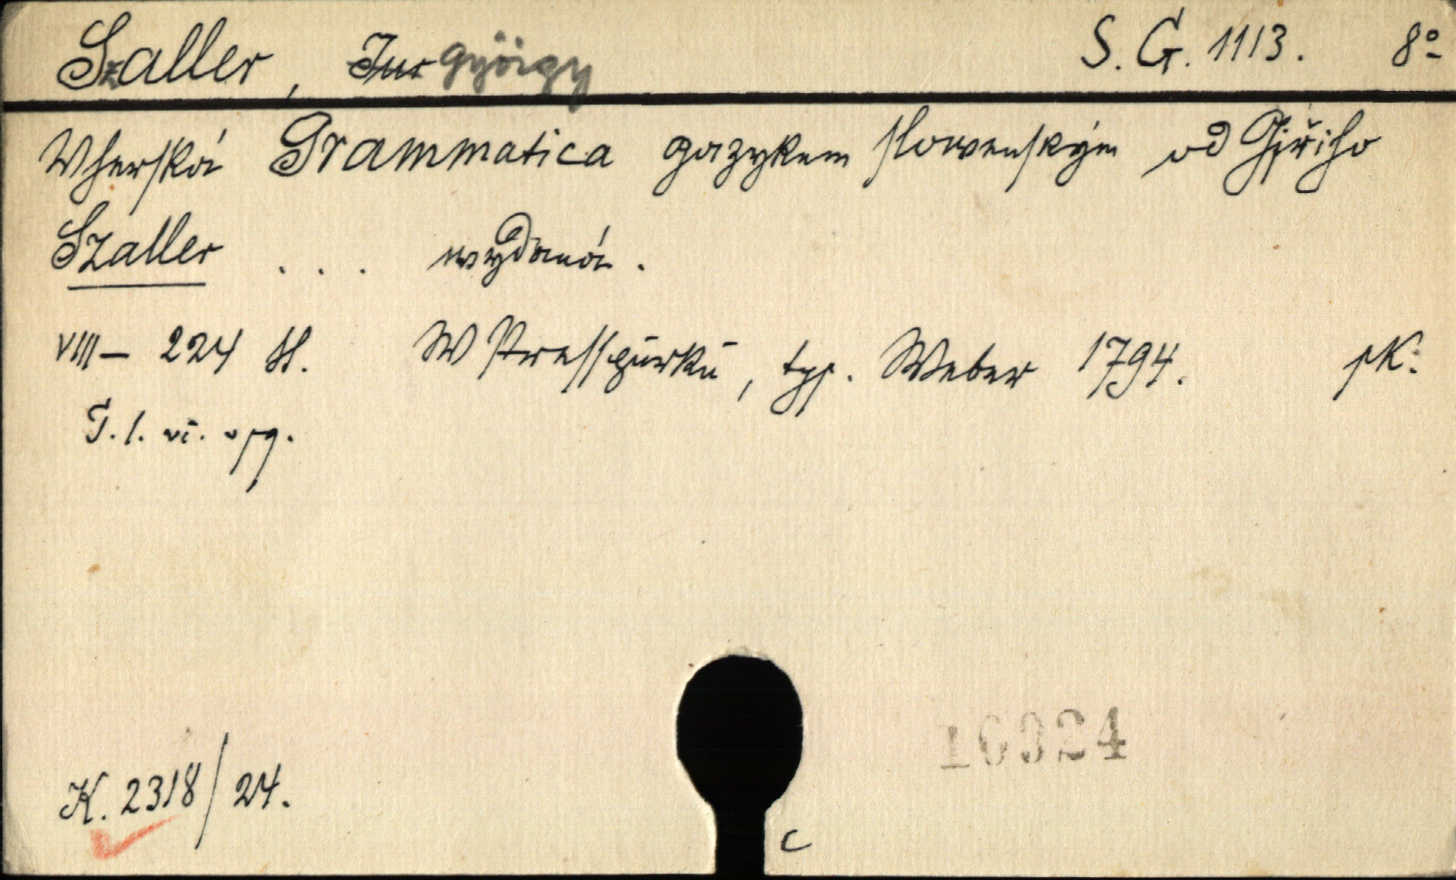 Szaller, Jur györgy S. G. 1113. 8º
Uherská Grammatica gazykem slowenským od Giřího
Szaller . . . wydaná.
VIII – 224 st. W Presspurku, typ. Weber 1794. sk:
K. 2318/24.
16924
c